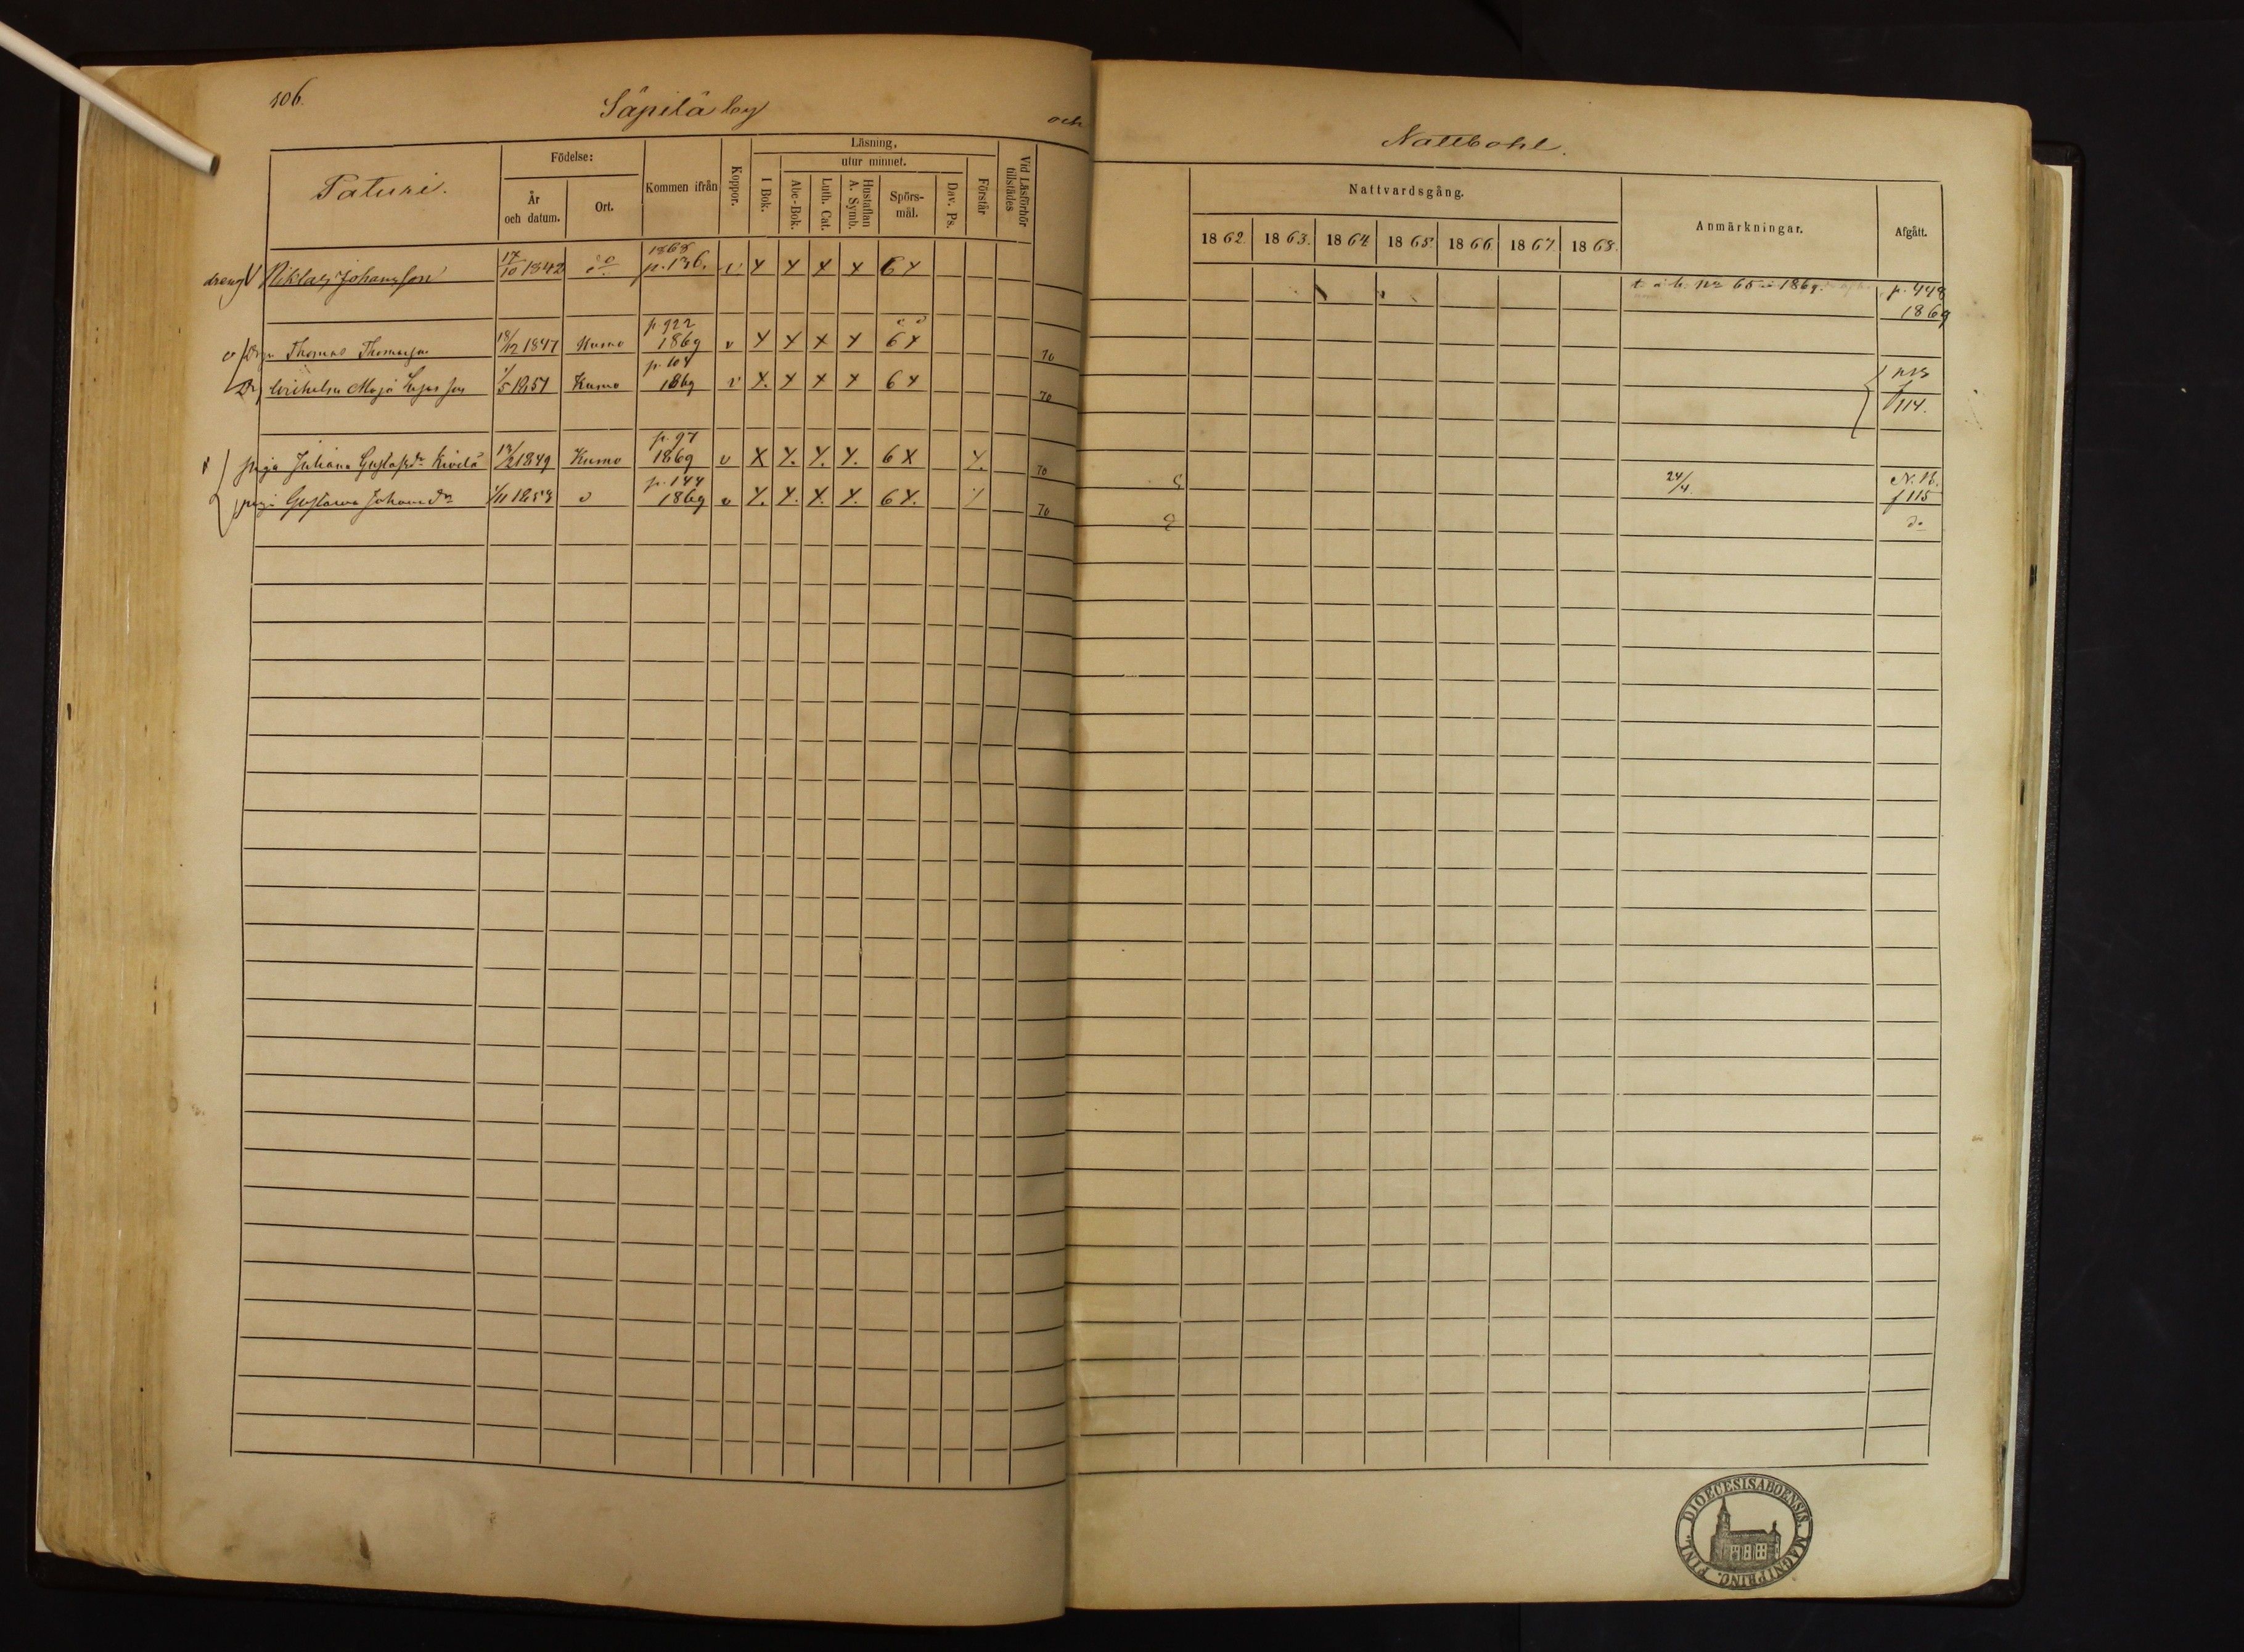 106.
Säpilä by och Nattbohl.
Taturi.
Födelse:
År och datum.
Ort.
Kommen ifrån
Koppor.
Läsning,
utur minnet.
I Bok.
Abc-Bok.
Luth. Cat.
Hustaflan A. Symb.
Spörs-mål.
Dav. Ps.
Förstår
Vid Läsförhör tillstädes
Nattvardsgång.
1862 1863. 1864 1865. 1866 1867 1868.
Anmärkningar.
Afgått.
dreng Niklas Johansson 17/10 1842 do 1868 p. 136. v x x x x 6 x t. a. b. No 65 i 1869. p. 448 1869
Thomas Thomasson 18/12 1847 Kumo p 922 1869 v x x x x 6 x 70
Maja 1/5 1851 Kumo p. 104 1869 v x. x x x 6 x 70 114.
piga Juliana Gustafsdr Kivelä 1849 Kumo p. 97 1869 v x x. x. x. 6 x x. 70 24/4. N. B. f 115
piga Gustava Johansdr p. 144 1869 v x. x. x. x. 6 x. 70 do
DIOECESIS ABOENSIS. MAGNI PRINC. FINL.